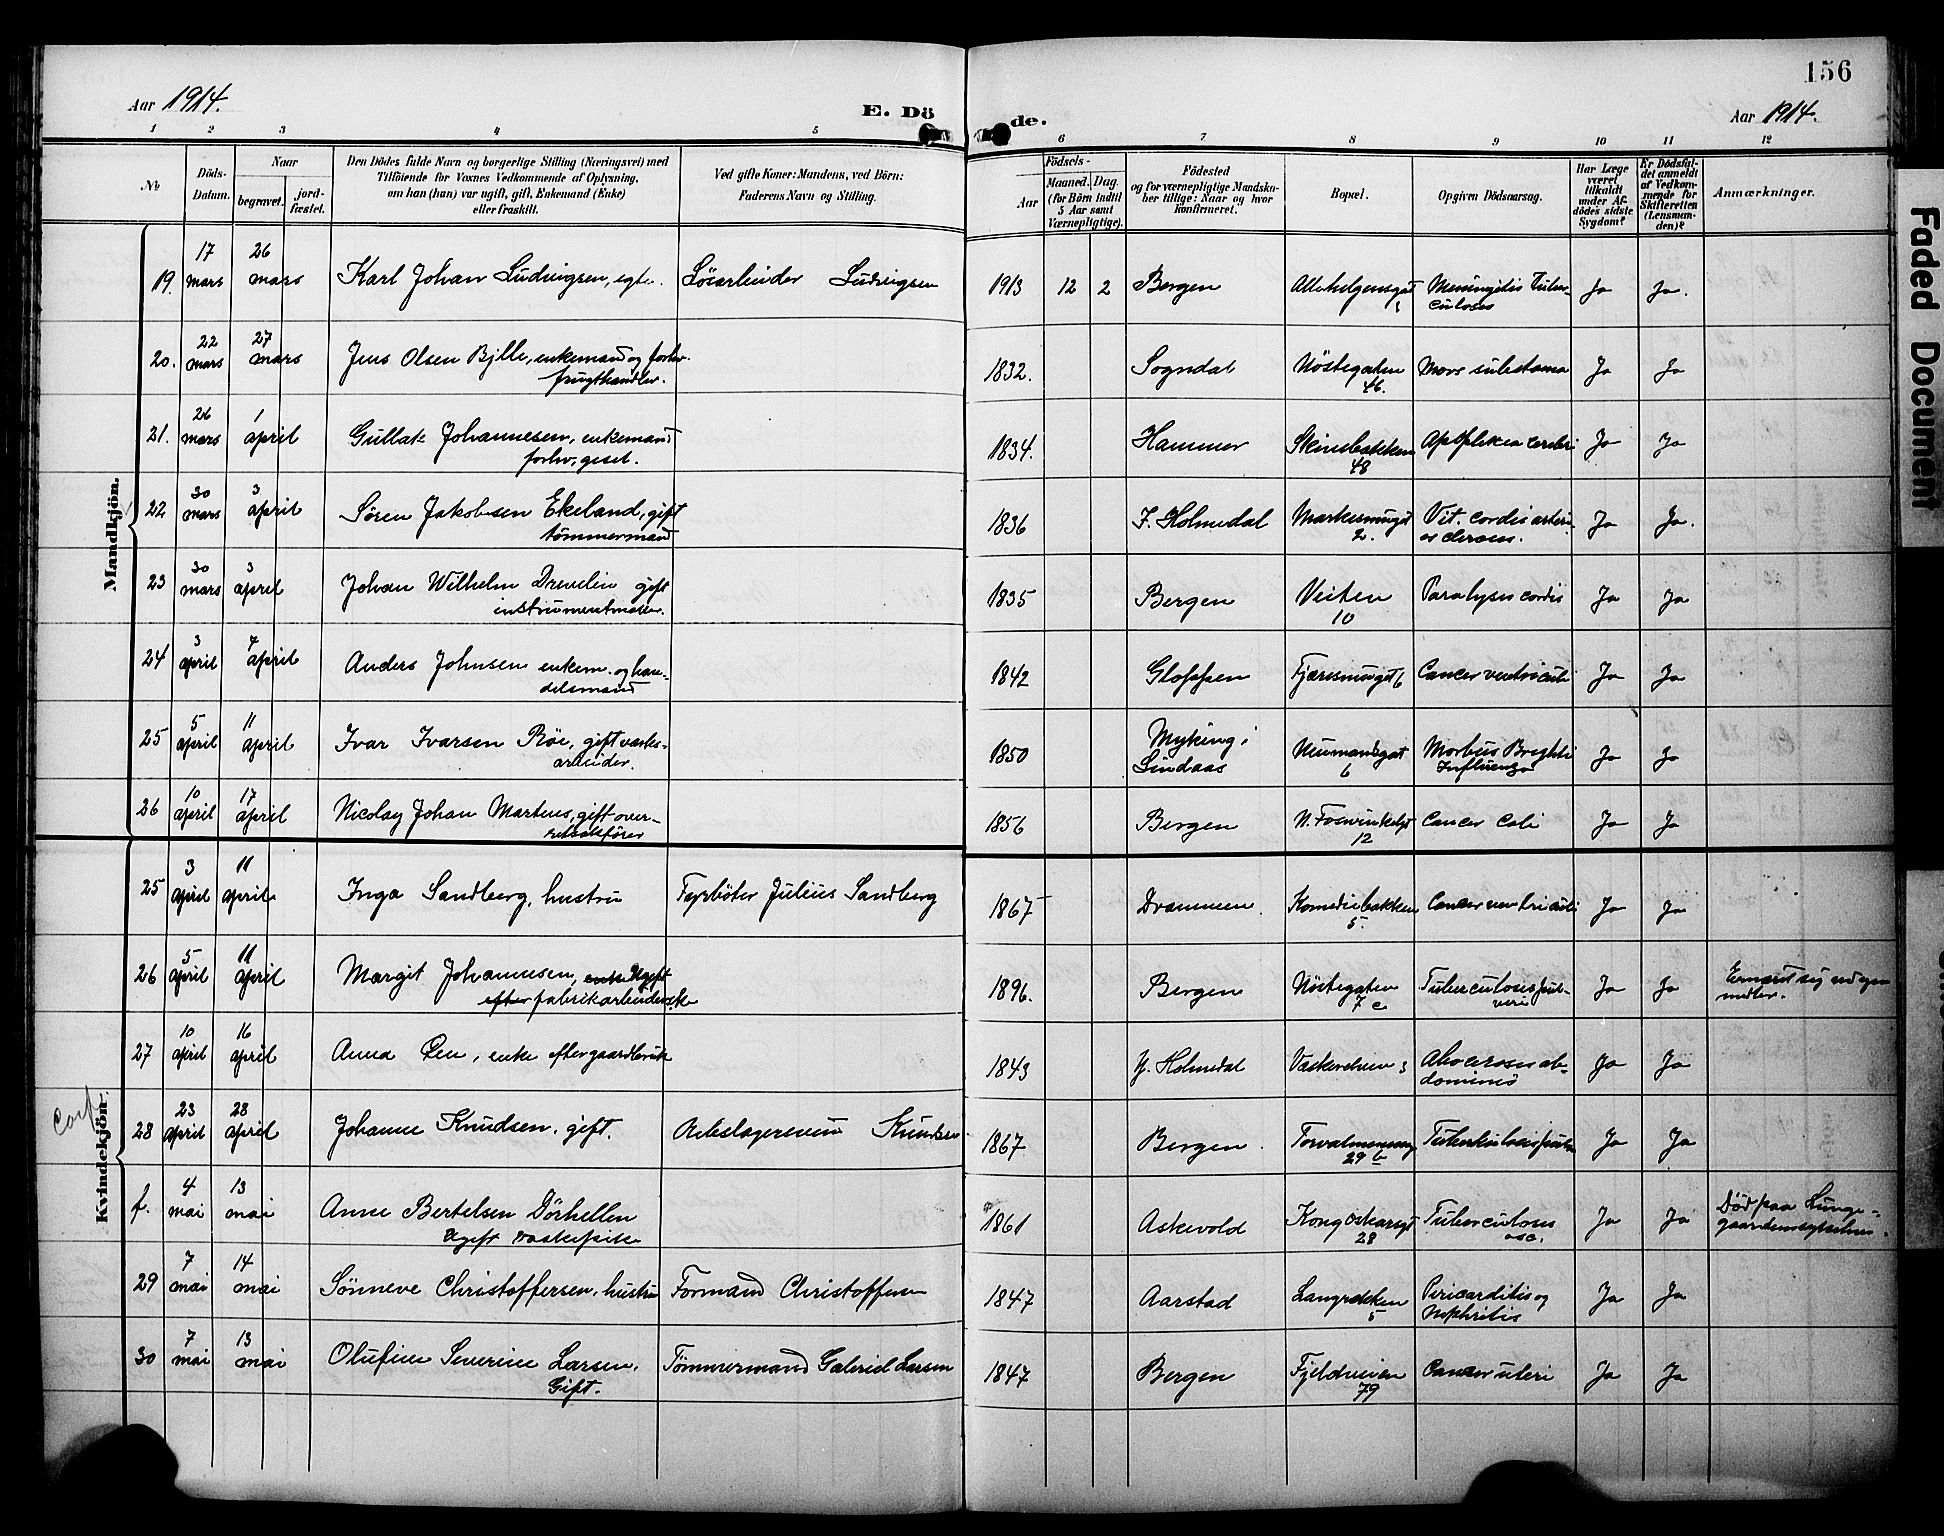 Aar 1914.
E. Dö
de.
156
Aar 1914.
1 2 3 4 5 6 7 8 9 10 11 12
No
Döds-
Datum.
Naar
begravet.
jord-
fæstet.
Den Dödes fulde Navn og borgerlige Stilling (Næringsvei) med
Tilföiende for Voxnes Vedkommende af Oplysning,
om han (hun) var ugift, gift, Enkemand (Enke)
eller fraskilt.
Ved gifte Koner: Mandens, ved Börn:
Faderens Navn og Stilling.
Födsels-
Aar
Maaned. Dag.
(for Börn indtil
5 Aar samt
Værnepligtige).
Födested
og for værnepligtige Mandska-
ber tillige: Naar og hvor
konfirmeret.
Bopæl.
Opgiven Dödsaarsag.
Har Læge
været
tilkaldt
under Af-
dödes sidste
Sygdom?
Er Dödsfal-
det anmeldt
af Vedkom-
mende for
Skifteretten
(Lensman-
den)?
Anmærkninger.
Mandkjön.
19. 17 mars 26 mars Karl Johan Ludvigsen, egte. Lösarbeider Ludvigsen 1913 12 2 Bergen Allehelgensgat Meningitis Tuber-
culoses Ja Ja.
20. 22 mars 27 mars Jens Olsen Bjlle, enkemand og forhv.
frugthandler. 1832. Sogndal Nöstegaten
46. Mors subitanea Ja Ja
21. 26 mars 1 april Gullak Johannesen, enkemand
forhv. gesel. 1834. Hammer Skivebakken
48 Apoplexia cerebri Ja Ja
22 30 mars 3 april Sören Jakobsen Ekeland, gift
tömmermand 1836 I. Holmedal Markesmuget
2. Vit. cordis arteri-
oscleroses. Ja Ja.
23 30 mars 3 april Johan Wilhelm Drevelin gift
instrumentmaker. 1835 Bergen Veiten
10 Paralyses cordis Ja Ja
24 3 april 7 april Anders Johnsen enkem. og han-
delsmand 1842 Gloppen Fjæresmuget 6 Cancer ventriculi Ja Ja
25 5 april 11 april Ivar Ivarsen Röe, gift verks-
arbeider. 1850 Myking i
Lindaas Neumandsgat
6 Morbus Brightii
Influenza Ja Ja
26 10 april 17 april Nicolay Johan Martens, gift over-
retssakförer 1856 Bergen N. Fosswinkelsgt
12 Cancer Coli Ja Ja
Kvindekjön.
25 3 april 11 april Inga Sandberg, hustru Fyrböter Julius Sandberg 1867 Drammen Komediebakken
5. Cancer ventriculi Ja Ja
26 5 april 11 april Margit Johannesen, enke Ugift
efter fabrikarbeiderske 1896. Bergen Nöstegaten
7 c Tuberculosis pul- Ja Ja Ernæret sig ved egne
midler.
27 10 april 16 april Anna Øen, enke efter gaardbruk 1843 Y. Holmedal Vaskerelven 3 ab-
dominis Ja Ja
28 23 april 28 april Johanne Knudsen, gift. Knudsen 1867 Bergen. Torvalmenning
29 b Tuberkulosis pulm Ja Ja
f. 4 mai 13 mai Anne Bertelsen Dörhellen
Ugift vaskepike 1861 Askevold Kong Oskarsgt
28 Tuberculosis
Ja Ja Död paa Lunge-
gaardens sykehus.
29 7 mai 14 mai Sönneve Christoffersen, hustru Formand Christoffersen 1847 Aarstad Langrækken
5 Pericarditis og
Nephritis Ja Ja
30 7 mai 13 mai Olufine Severine Larsen,
Gift. Tömmermand Gabriel Larsen 1847 Bergen Fjeldveien
79 Cancer uteri Ja Ja
Faded Document